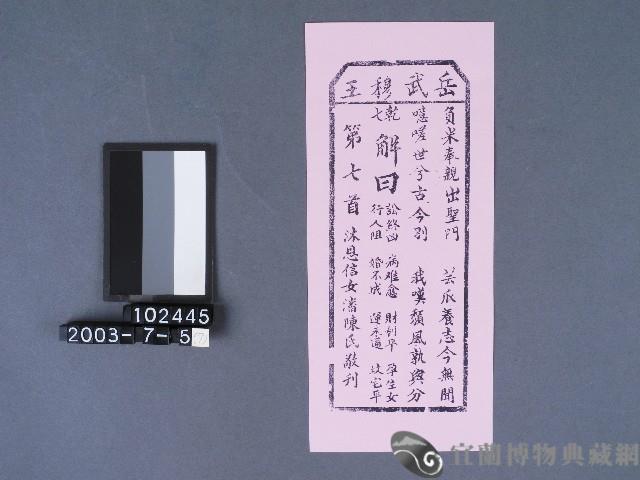 岳武穆王
負米奉親出聖門 芸瓜養志今無聞
噫嗟世兮古今别 我嘆頹風孰與分
乾七
解曰
訟終凶 病难愈 財利平 孕生女
行人阻 婚不成 運未通 坟宅平
第七首 沐恩信女潘陳氏敬刊
102445
2003-7-5
宜蘭博物典藏網